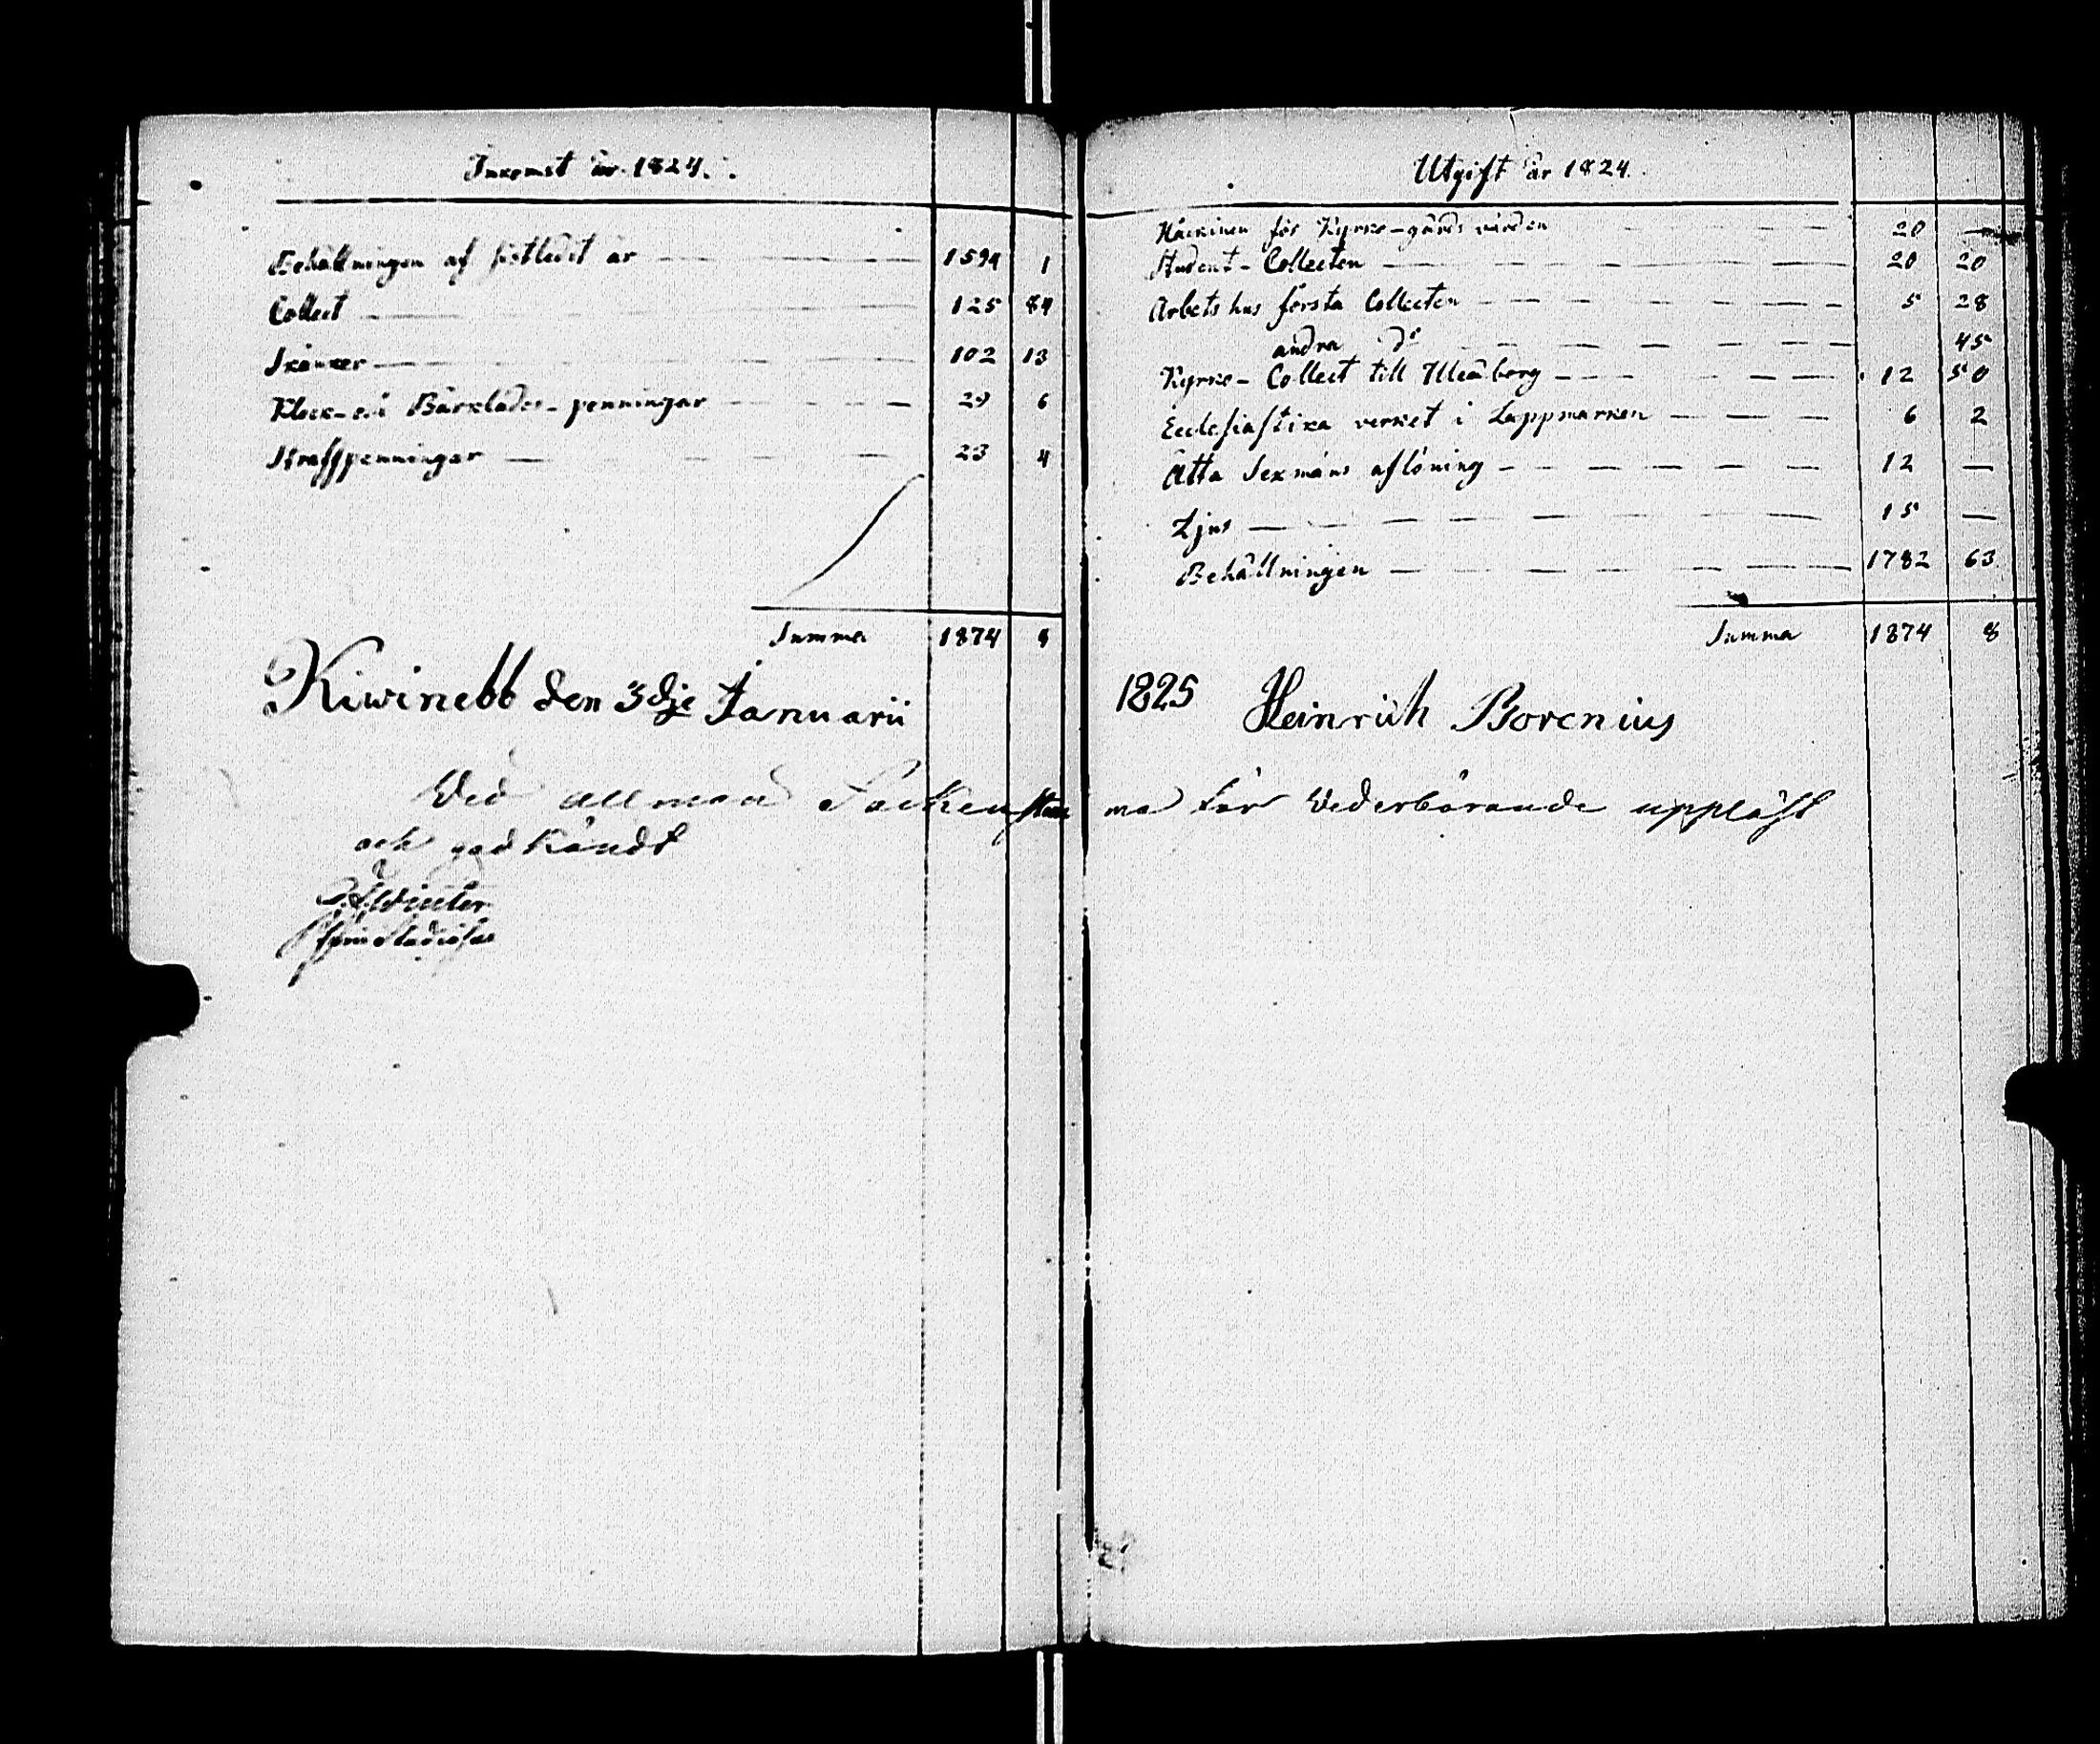 Inkomst år 1824.
Behållningen af sistledit år 1594 1
Collect 125 84
Skänker 102 13
Klock- och Bårklädes-penningar 29 6
Straffpenningar 23 4
Summa 1874 8
Kiwinebb den 3dje Januarii
Utgift år 1824.
för Kyrko-gårds vården 20 —
Student-Collecten 20 20
Arbetshus första Collecten 5 28
andra do 45
Kyrko-Collect till Uleåborg 12 50
Ecclesiastika verket i Lappmarken 6 2
Åtta Sexmäns aflöning 12 —
Ljus 15 —
Behållningen 1782 63
Summa 1874 8
1825 Heinrich Borenius
Vid allmän Sockenstämma för Vederbörande uppläst
och godkändt
Winter